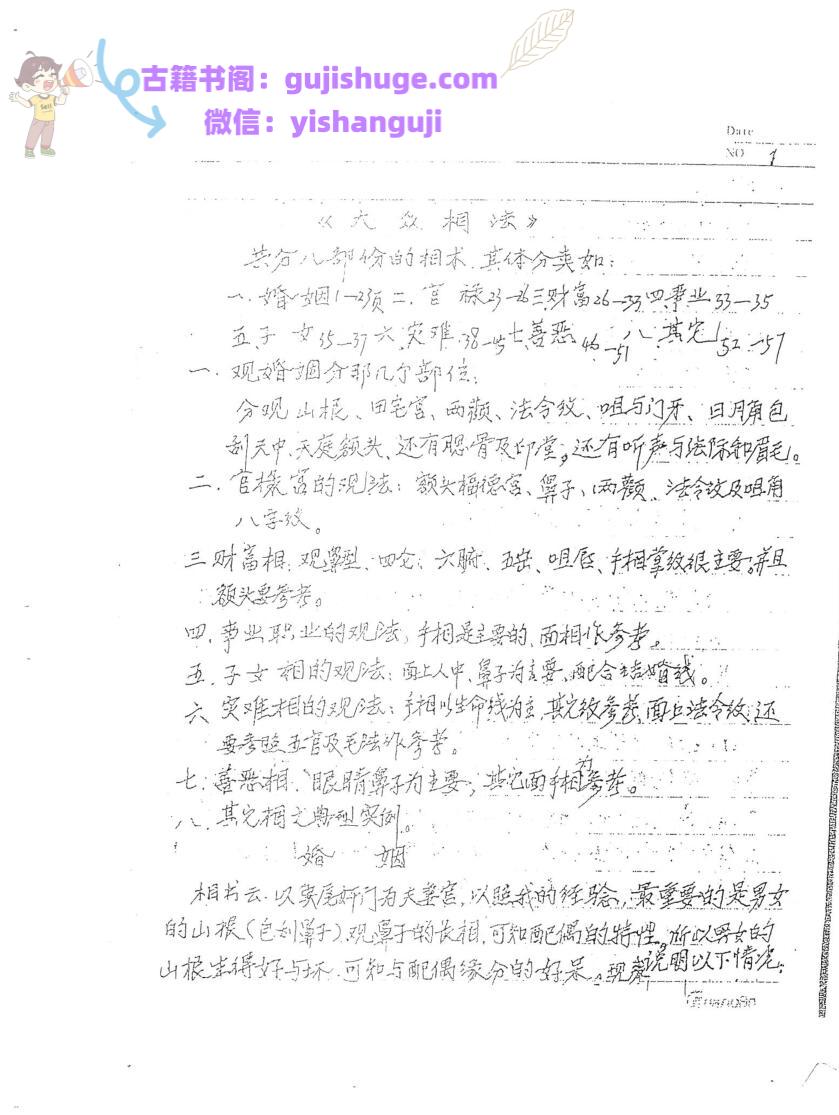 古籍书阁：gujishuge.com
微信：yishanguji
Sell
Date
NO 1
《大众相法》
共分八部份的相术，其体分类如：
一、婚姻1—23页 二、官禄23—26 三财富26—33 四、事业33—35
五子女35—37 六、灾难38—45 七善恶46—51 八、其它52—57
一、观婚姻分那几个部位：
分观山根、田宅宫、两颧、法令纹、咀与门牙、日月角包
刮天中、天庭额头、还有腮骨及印堂。还有听声与法际和眉毛。
二、官禄宫的观法：额头福德宫、鼻子、两颧、法令纹及咀角
八字纹。
三财富相：观鼻型、四仑、六腑、五岳、咀唇、手相掌纹很主要。并且
额头要参考。
四、事业职业的观法，手相是主要的、面相作参考。
五、子女相的观法：面上人中、鼻子为主要，配合结婚线。
六 灾难相的观法：手相以生命线为主，其它纹参考，面上法令纹，还
要考照五官及毛法作参考。
七、善恶相、眼睛鼻子为主要；其它面手相为参考。
八、其它相之典型实例。
婚姻
相书云：以奸门为夫妻宫，以照我的经验，最重要的是男女
的山根（包刮鼻子）观鼻子的长相，可知配偶的特性。所以男女的
山根生得好与坏，可知与配偶缘分的好呆。现察说明以下情况：